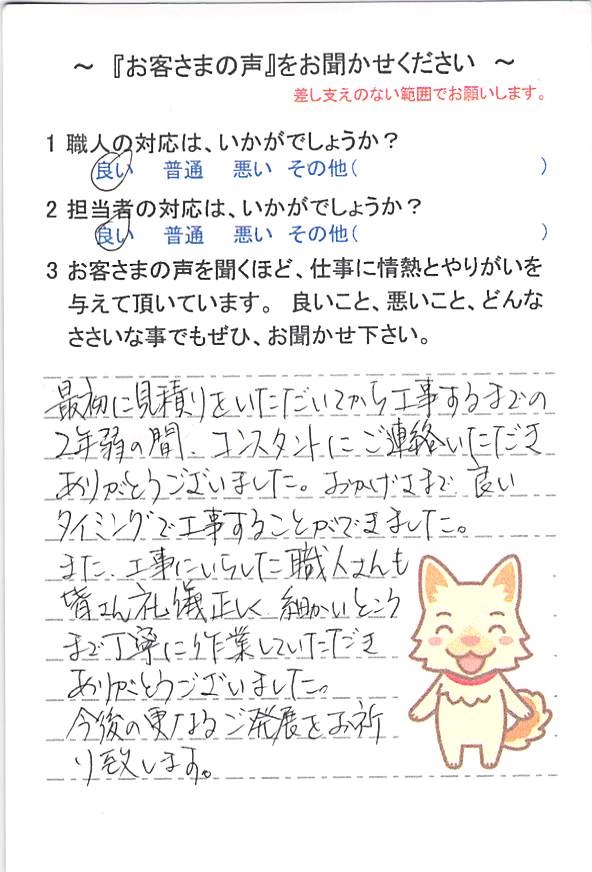 ～ 『お客さまの声』をお聞かせください ～
差し支えのない範囲でお願いします。
1 職人の対応は、いかがでしょうか？
良い 普通 悪い その他( )
2 担当者の対応は、いかがでしょうか？
良い 普通 悪い その他( )
3 お客さまの声を聞くほど、仕事に情熱とやりがいを
与えて頂いています。 良いこと、悪いこと、どんな
ささいな事でもぜひ、お聞かせ下さい。
最初に見積りをいただいてから工事するまでの
2年弱の間、コンスタントにご連絡いただき
ありがとうございました。おかげさまで、良い
タイミングで工事することができました。
また、工事にいらした職人さんも
皆さん礼儀正しく、細かいところ
まで丁寧に作業していただき
ありがとうございました。
今後の更なるご発展をお祈
り致します。